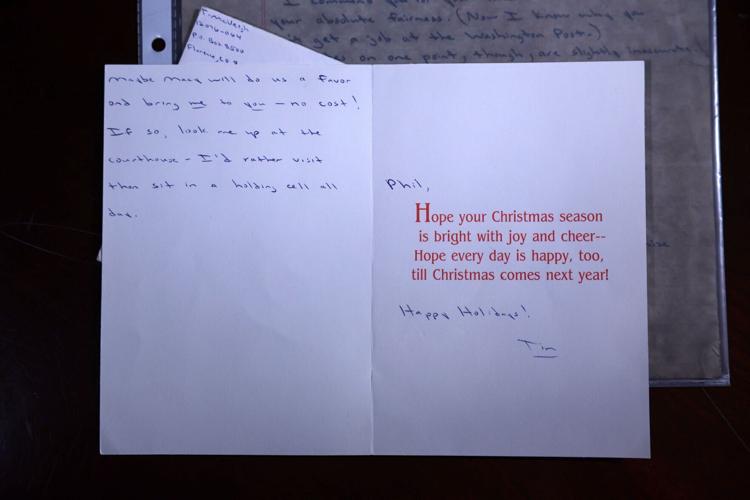 T. McVeigh
12076-064
P.O. Box 8500
Florence, CO 8
your absolute fairness. (Now I know why you
get a job at the Washington Post.)
on one point, though, are slightly inaccurate.
Maybe Macy will do us a favor
and bring me to you – no cost!
If so, look me up at the
courthouse – I'd rather visit
then sit in a holding cell all
day.
Phil,
Hope your Christmas season
is bright with joy and cheer--
Hope every day is happy, too,
till Christmas comes next year!
Happy Holidays!
Tim